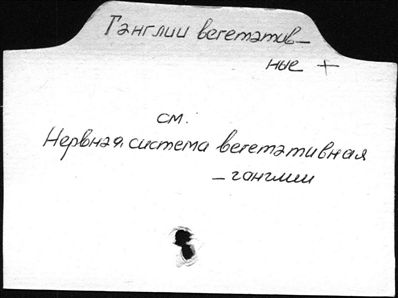 Ганглии вегетатив-
ные +
см.
Нервная система вегетативная
- ганглии